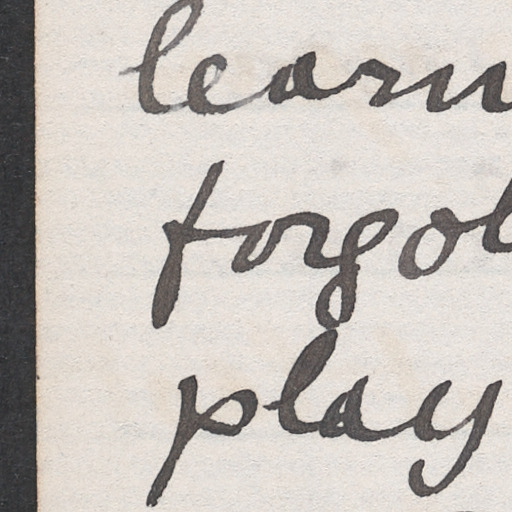 learn
forgot
play